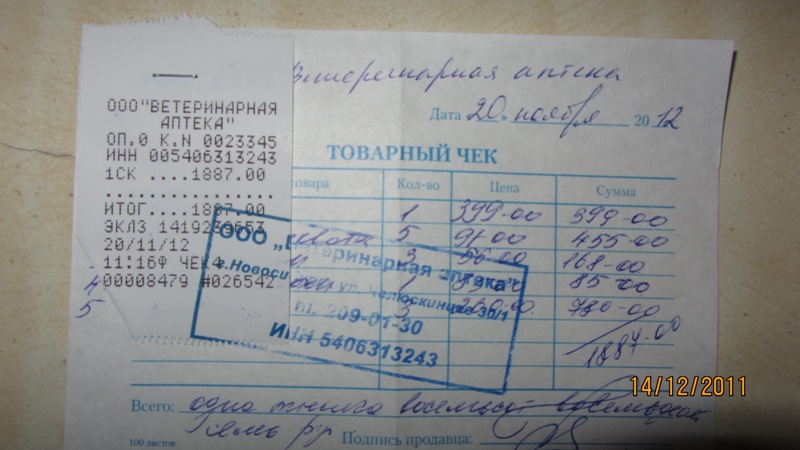 ООО"ВЕТЕРИНАРНАЯ
АПТЕКА"
ОП.0 К.N 0023345
ИНН 005406313243
1СК ....1887.00
ИТОГ....1887.00
ЭКЛЗ 1419239653
20/11/12
11:16Ф ЧЕК
00008479 #026542
Ветеринарная аптека
Дата 20 ноября 2012
ТОВАРНЫЙ ЧЕК
товара Кол-во Цена Сумма
1 399-00 399-00
5 91-00 455-00
3 56-00 168-00
4 1 85-00
5 3 260-00 780-00
1887-00
ООО „Ветеринарная аптека"
г.Новоси ул. Челюскинцев 30/1
209-01-30
ИНН 5406313243
Всего: одна тысяча восемьсот восемьдесят
семь рр
100 листов Подпись продавца:
14/12/2011